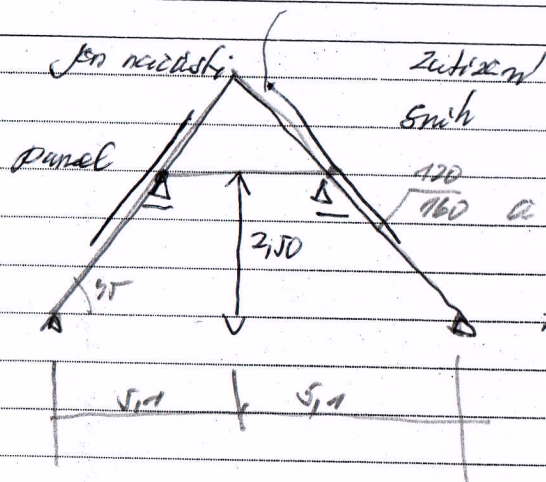 jen na části
Zatížení
Sníh
panel
120
160
2,50
35
5,1
5,1